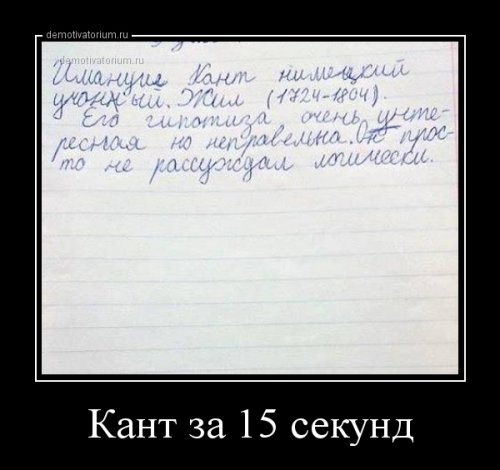 demotivatorium.ru
demotivatorium.ru
Имануил Кант нимецкий
учонный. Жил (1724-1804).
Его гипотиза очень унте-
ресная но неправельна. Он прос-
то не рассуждал логически.
Кант за 15 секунд